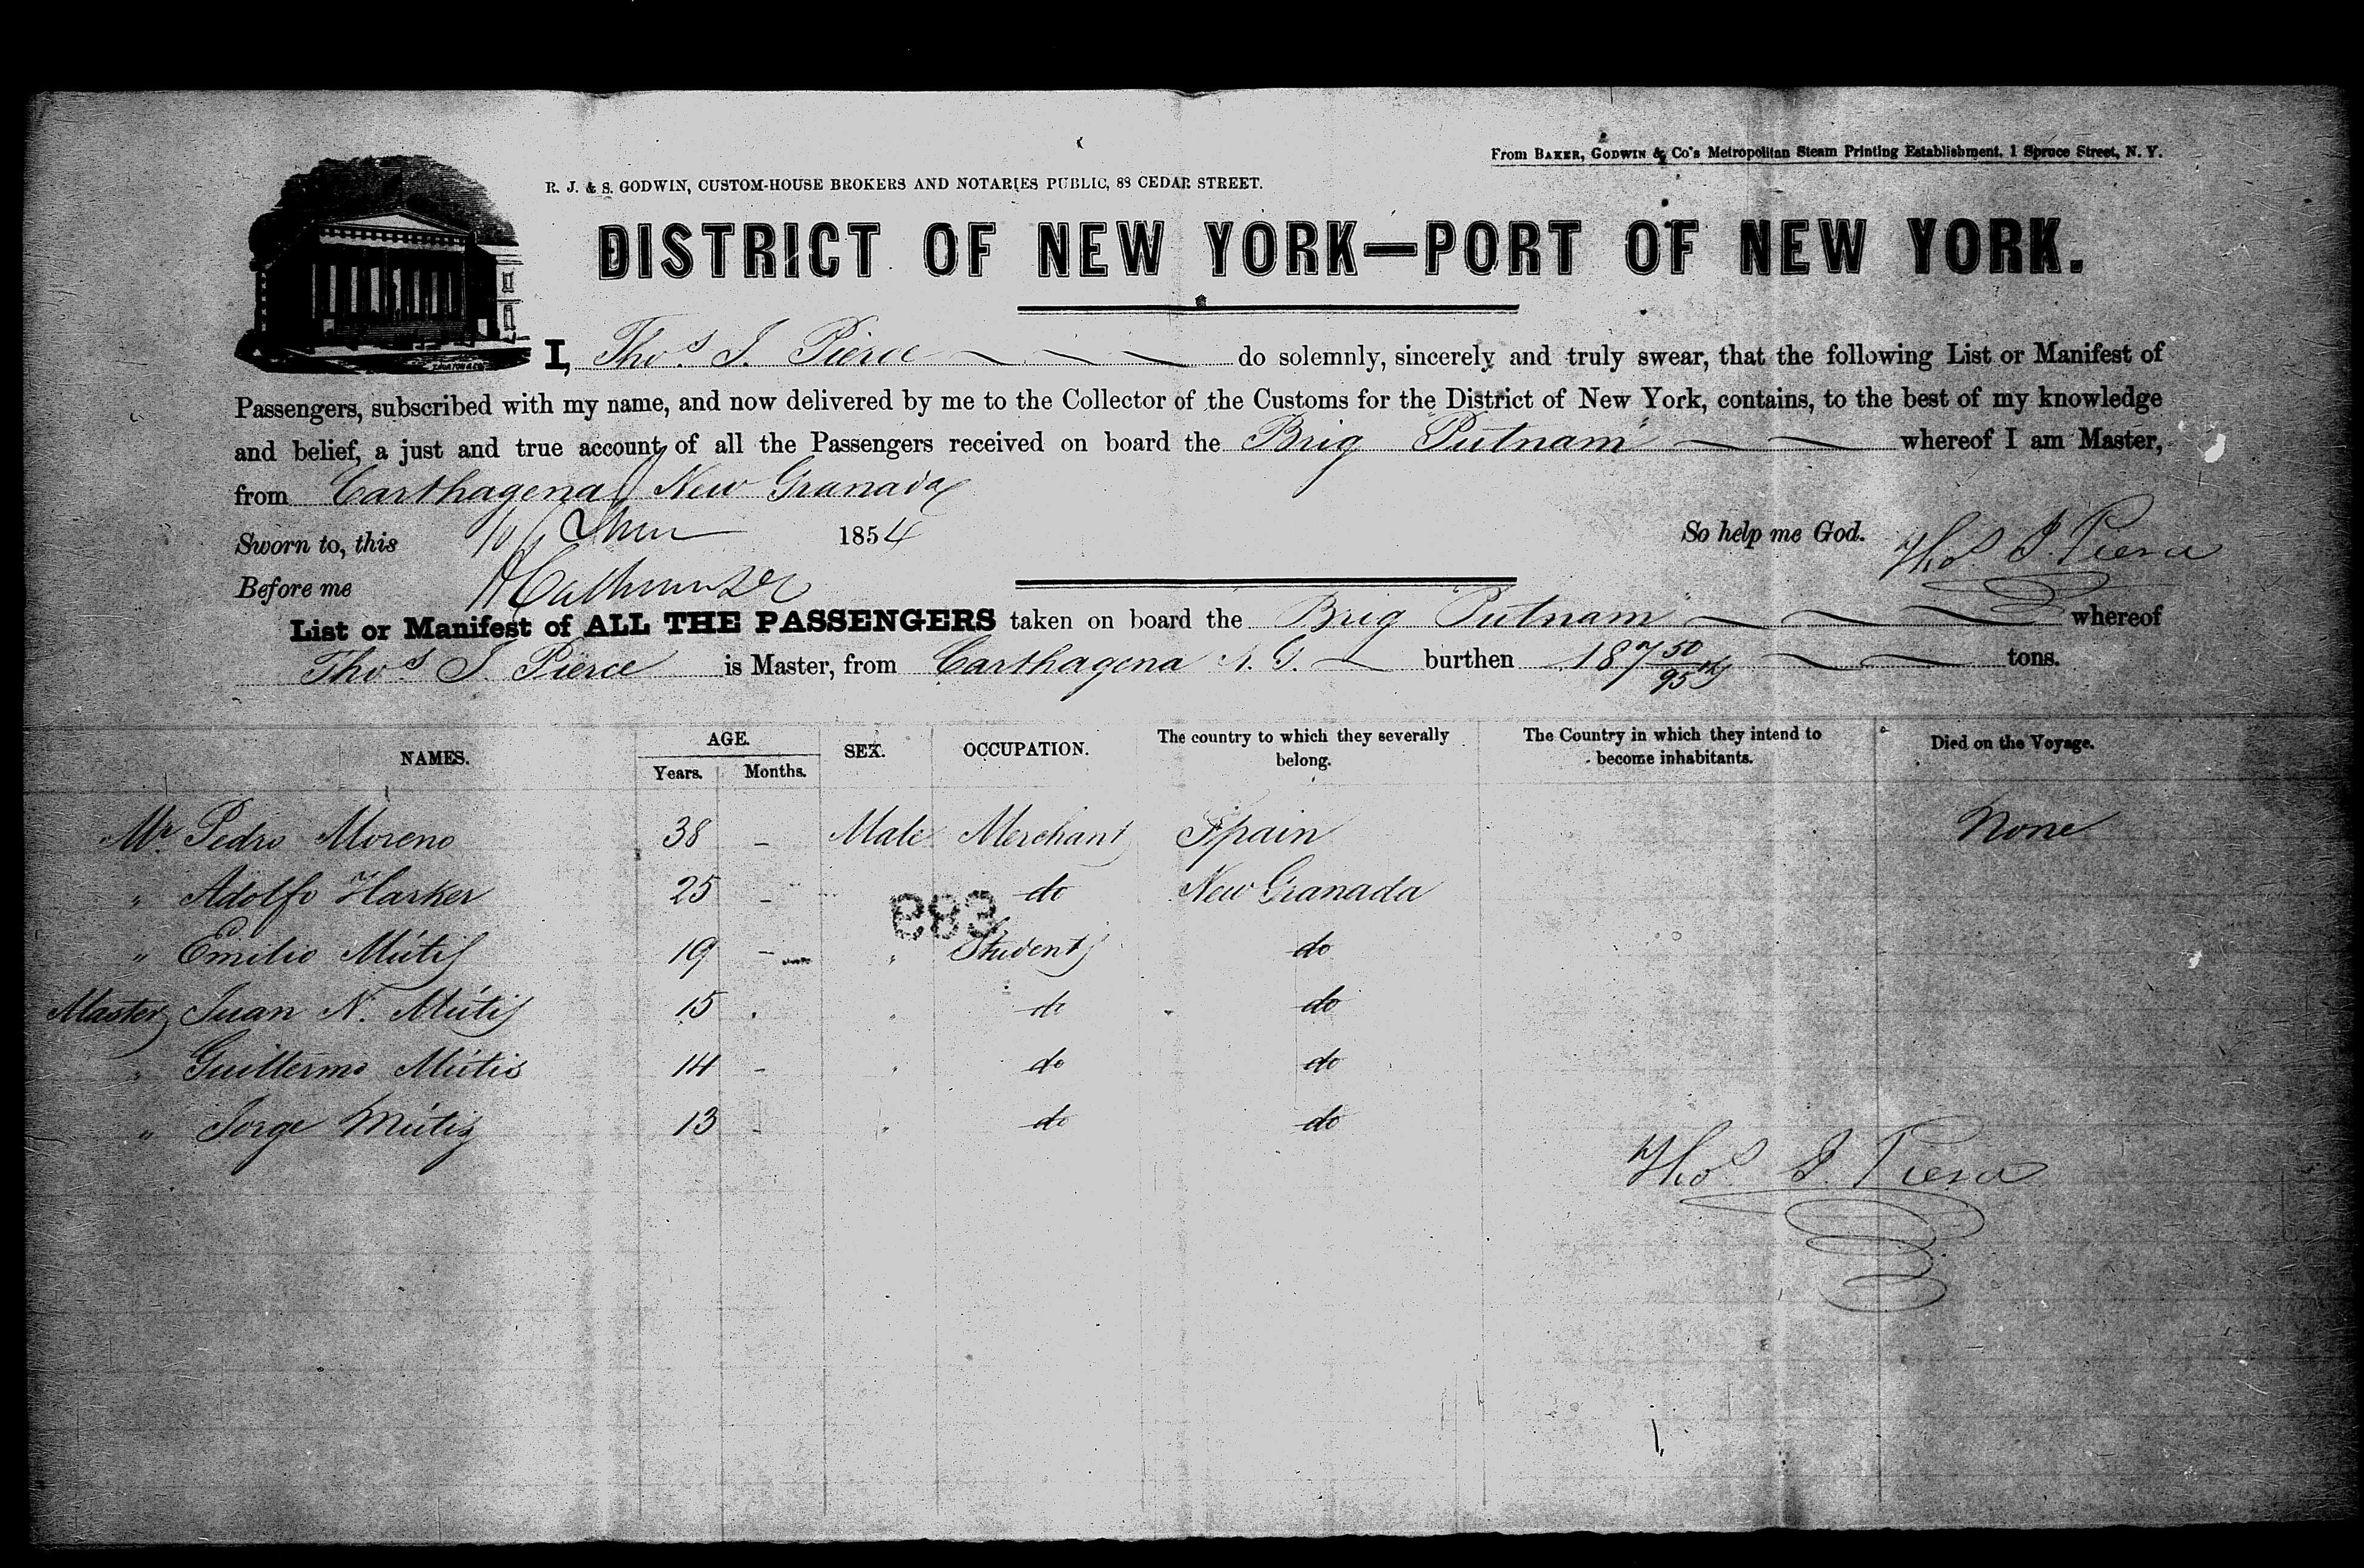 From BAKER, GODWIN & Co's Metropolitan Steam Printing Establishment, 1 Spruce Street, N. Y.
R. J. & S. GODWIN, CUSTOM-HOUSE BROKERS AND NOTARIES PUBLIC, 88 CEDAR STREET.
DISTRICT OF NEW YORK—PORT OF NEW YORK.
I, Thos. J. Pierce do solemnly, sincerely and truly swear, that the following List or Manifest of
Passengers, subscribed with my name, and now delivered by me to the Collector of the Customs for the District of New York, contains, to the best of my knowledge
and belief, a just and true account of all the Passengers received on board the Brig Putnam whereof I am Master,
from Carthagena New Granada
Sworn to, this 1854 So help me God. Thos J. Pierce
Before me
List or Manifest of ALL THE PASSENGERS taken on board the Brig Putnam whereof
Thos J. Pierce is Master, from Carthagena N. G. burthen 187 50/95ths tons.
NAMES. AGE. Years. Months. SEX. OCCUPATION. The country to which they severally belong. The Country in which they intend to become inhabitants. Died on the Voyage.
Mr. Pedro Moreno 38 – Male Merchant Spain None
" Adolfo Harker 25 – do New Granada
883
" Emilio Mútis 19 – " Student do
Master Juan N. Mútis 15 " do do
" Guillermo Mútis 14 – " do do
" Jorge Mútis 13 – " do do
Thos J. Pierce